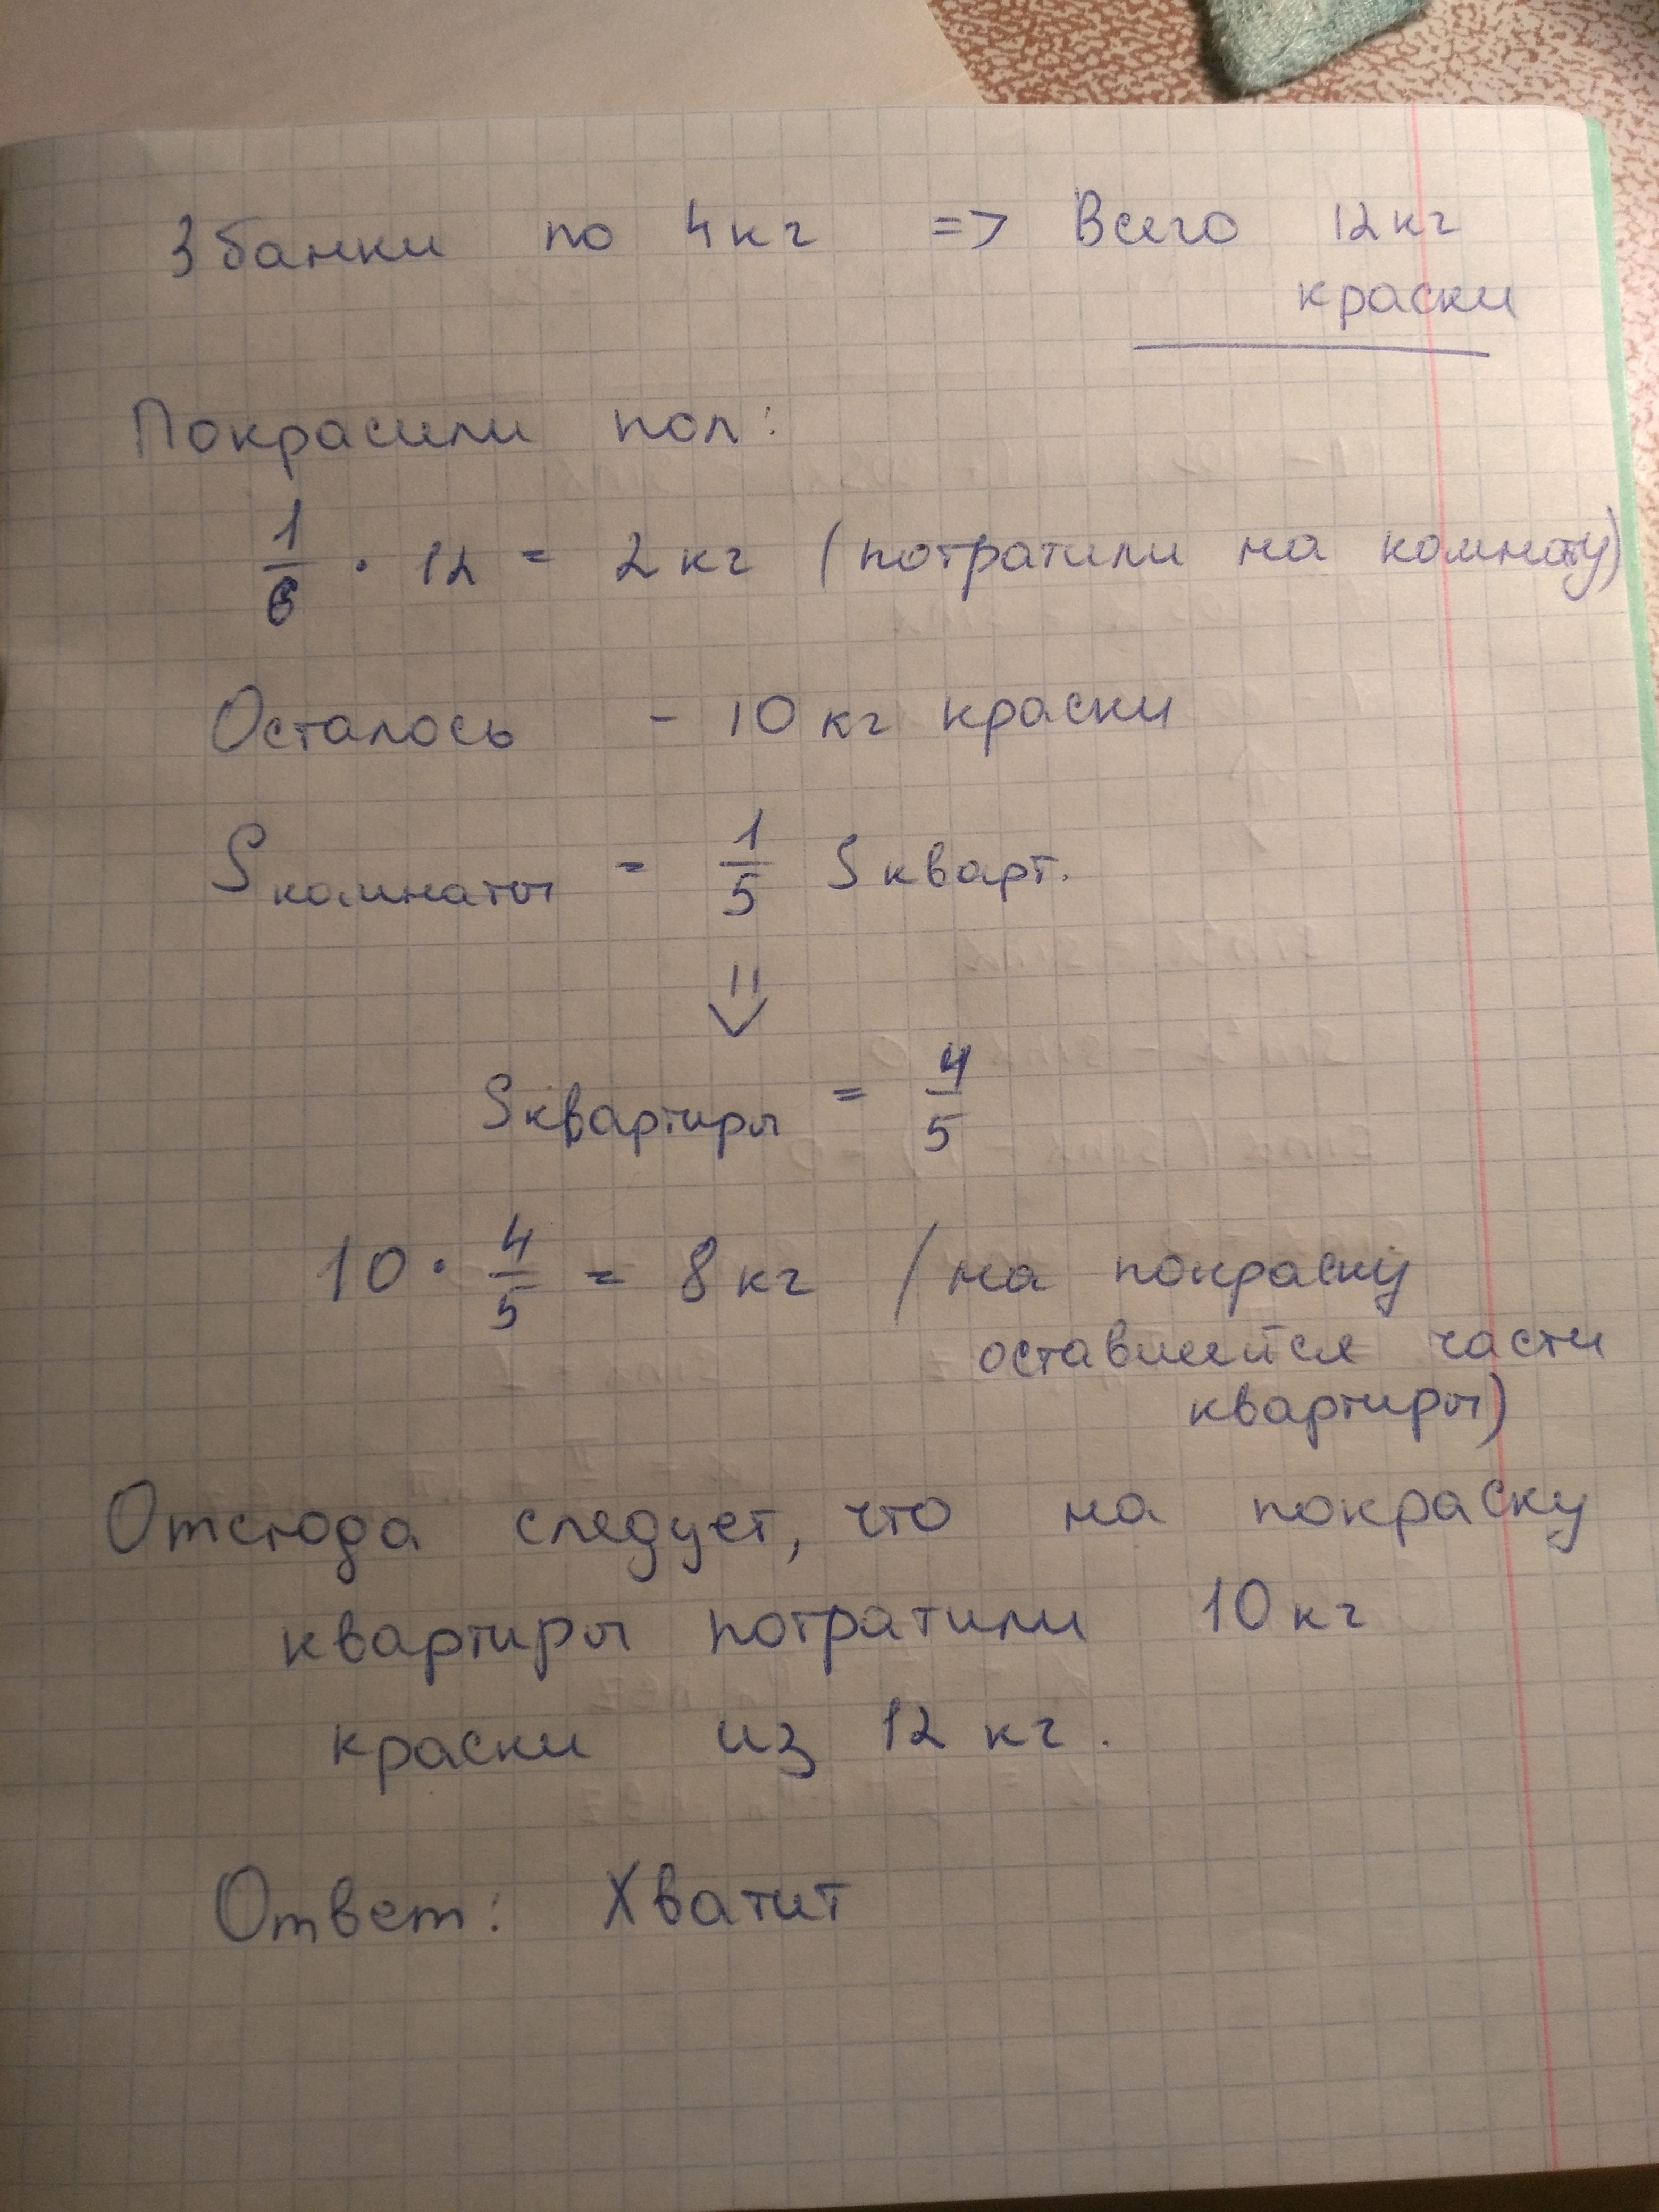 3 банки по 4 кг => Всего 12 кг
краски
Покрасили пол:
1/6 · 12 = 2 кг (потратили на комнату)
Осталось - 10 кг краски
S комнаты = 1/5 S кварт.
⇓
S квартиры = 4/5
10 · 4/5 = 8 кг (на покраску
оставшейся части
квартиры)
Отсюда следует, что на покраску
квартиры потратили 10 кг
краски из 12 кг.
Ответ: Хватит